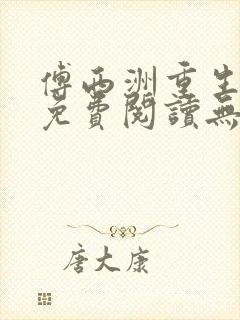 傅西洲重生
免費閱讀無
唐大康